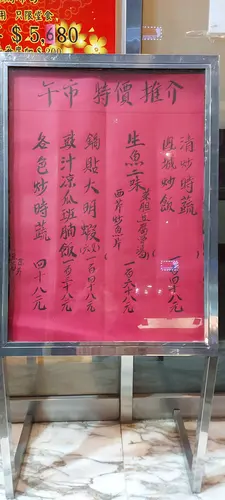 只限堂食
$5,680
午市 特價推介
清炒時蔬
炒飯
一百四十八元
生魚二味
西芹炒魚片
一百六十八元
鍋貼大明蝦
一百四十八元
豉汁涼瓜斑腩飯
一百二十八元
各色炒時蔬
四十八元